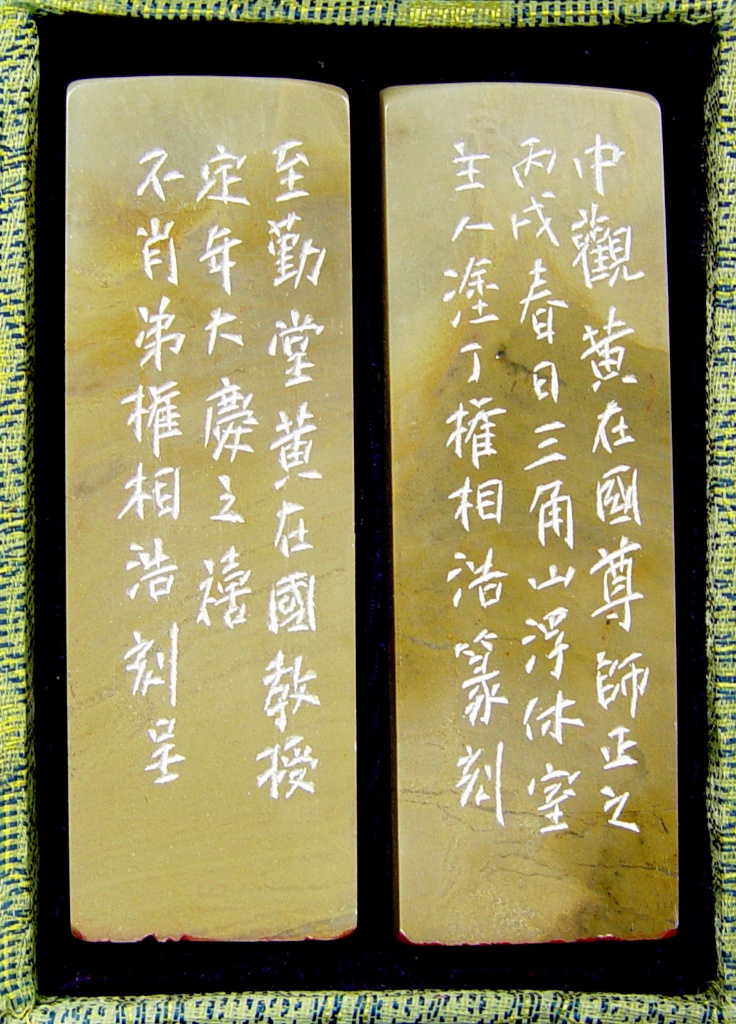 中觀黃在國尊師正之
丙戌春日三角山浮休室
主人塗丁權相浩篆刻
至勤堂黃在國教授
定年大慶之禧
不肖弟權相浩刻呈